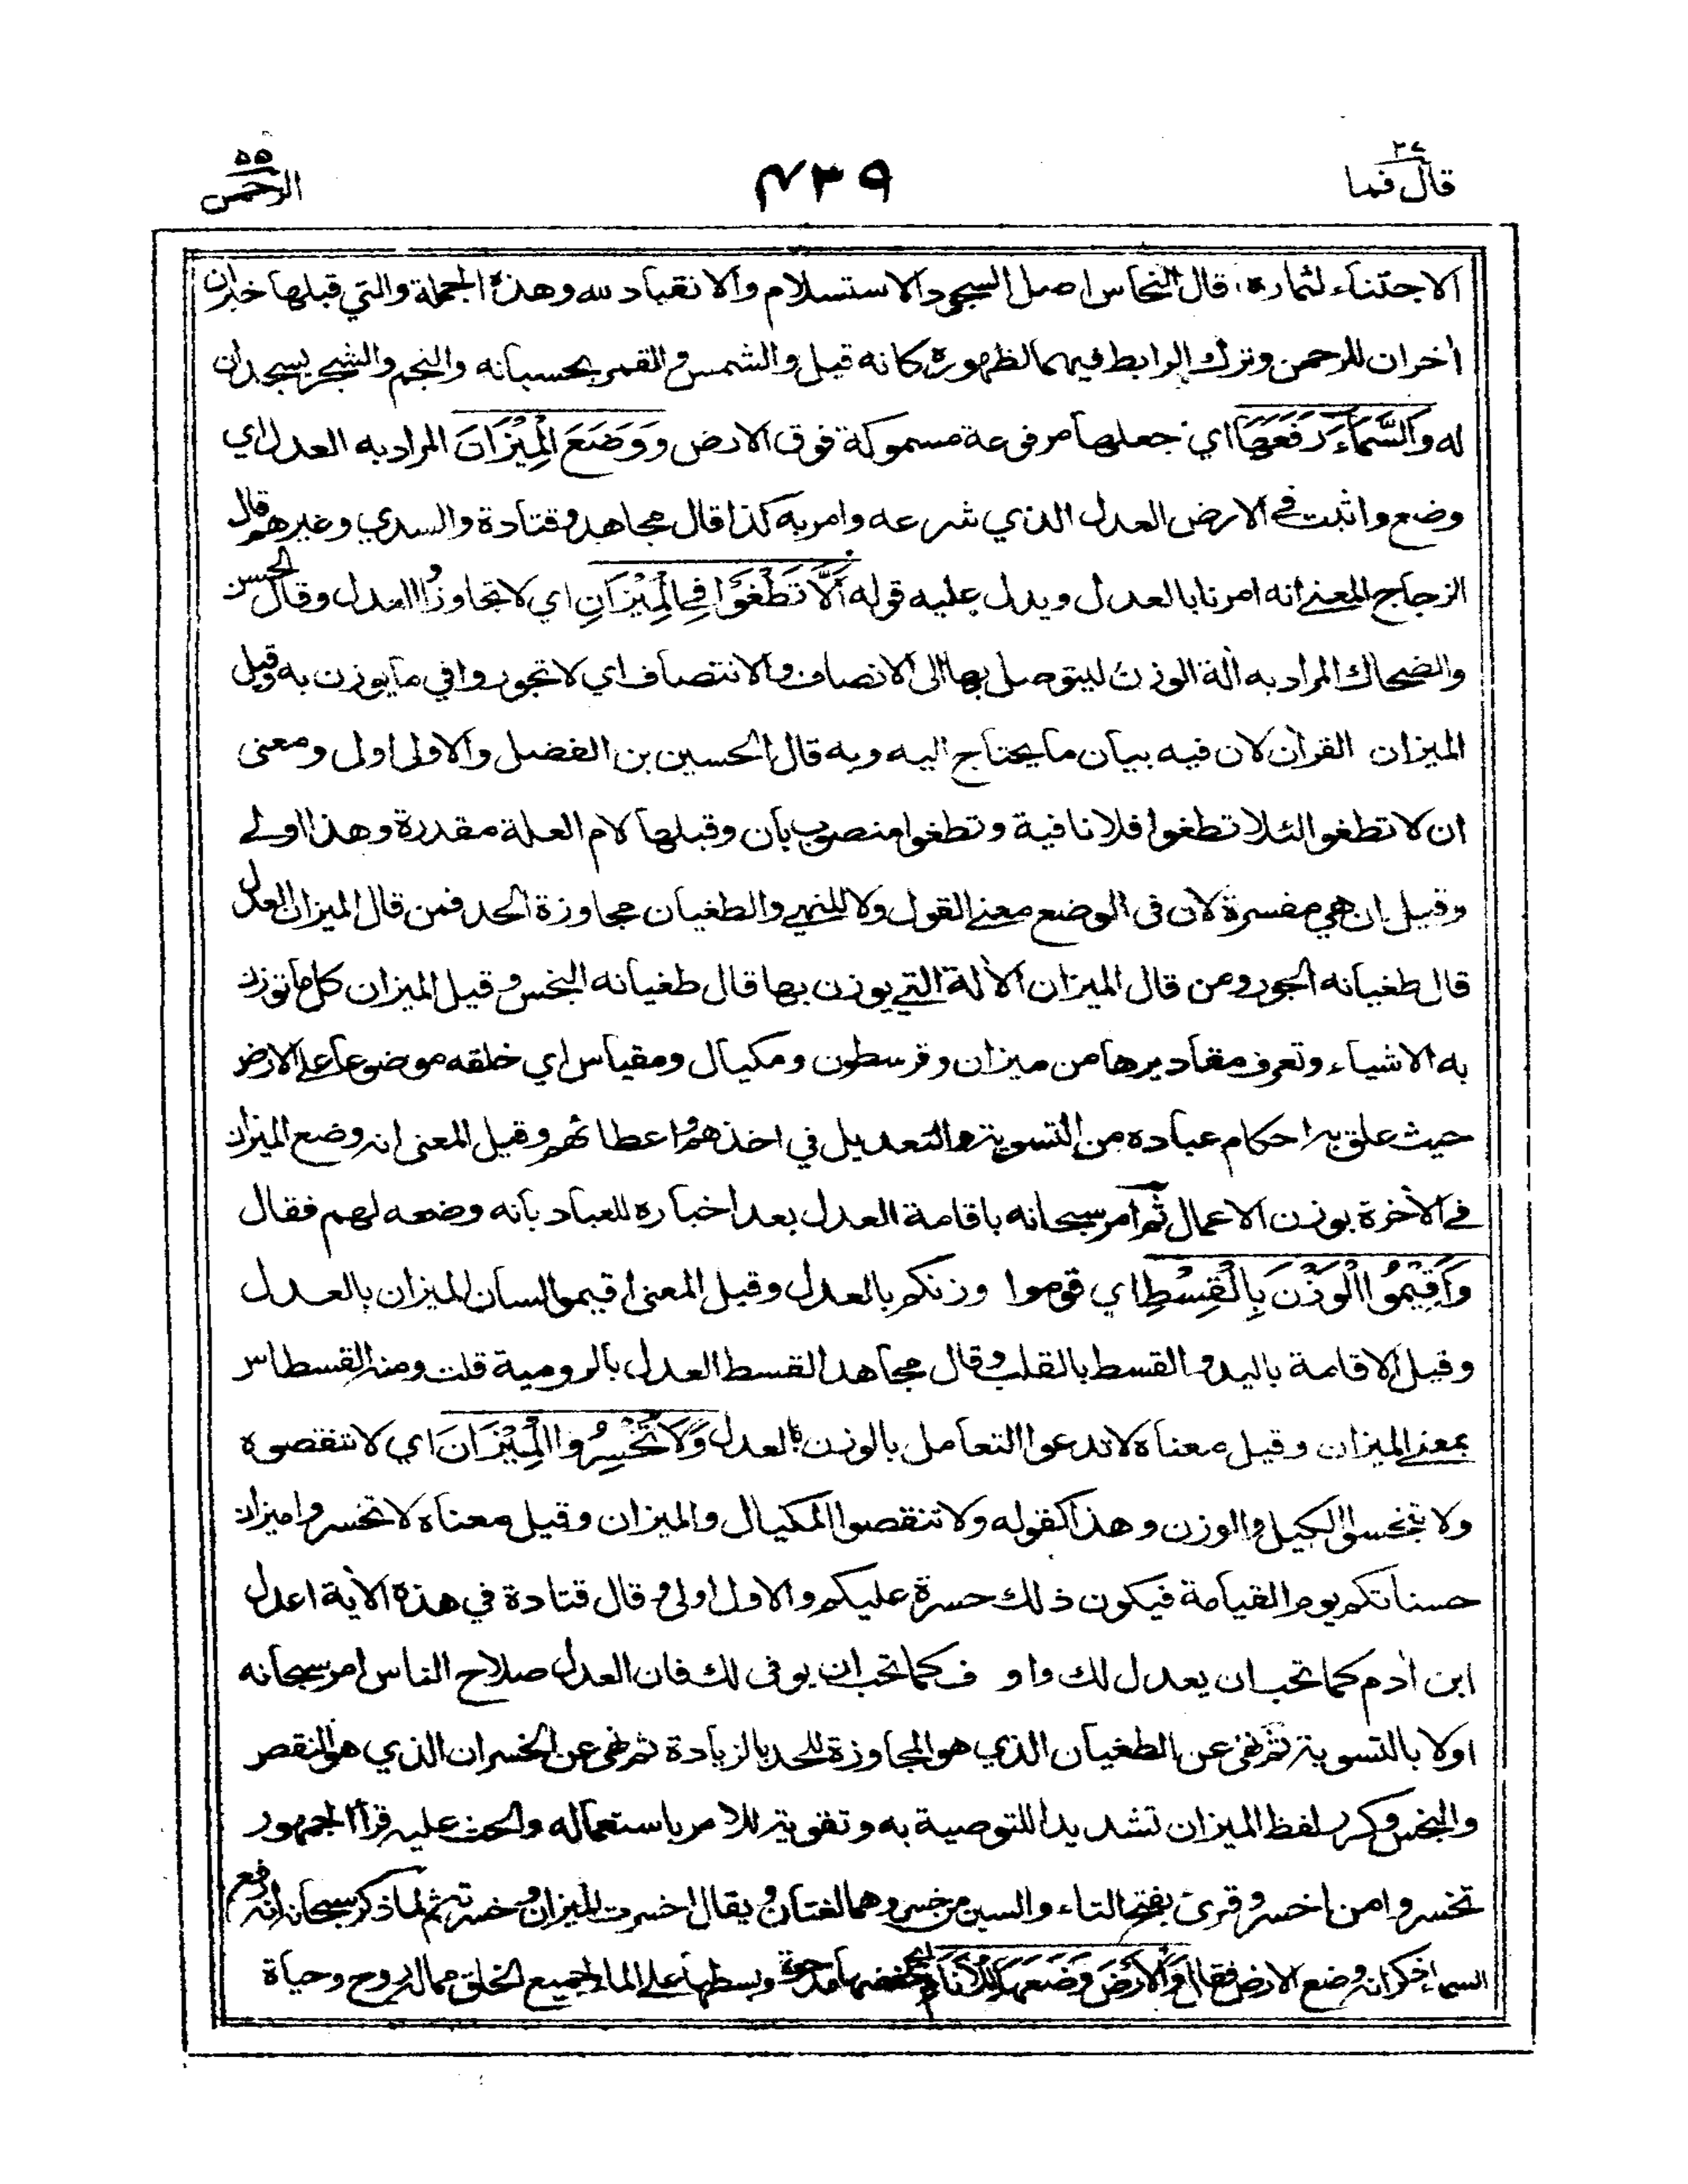 ۲۷
قال فما
۴۳۹
۵۵
الرحمن
الاجتناء لثماره، قال النحاس اصل السجود الاستسلام والانقياد لله وهذه الجملة والتي قبلها خبران
أخران للرحمن وترك الرابط فيهما لظهوره كانه قيل والشمس والقمر بحسبانه والنجم والشجر يسجدان
له وَالسَّمَاءَ رَفَعَهَا اي جعلها مرفوعة مسموكة فوق الارض وَوَضَعَ الْمِيْزَانَ المراد به العدل اي
وضع واثبت في الارض العدل الذي شرعه وامر به كذا قال مجاهد وقتادة والسدي وغيرهم قال
الزجاج المعنى انه امرنا بالعدل ويدل عليه قوله اَلَّا تَطْغَوْا فِي الْمِيْزَانِ اي لا تجاوزوا العدل وقال الحسن
والضحاك المراد به ألة الوزن ليتوصل بها الى الانصاف والانتصاف اي لا تجوروا في ما يوزن به وقيل
الميزان القرأن لان فيه بيان ما يحتاج اليه وبه قال الحسين بن الفضل والاولى اولى ومعنى
ان لا تطغوا لئلا تطغوا فلا نافية وتطغوا منصوب بأن وقبلها لام العلة مقدرة وهذا اولى
وقيل ان هي مفسرة لان في الوضع معنى القول ولا للنهي والطغيان مجاوزة الحد فمن قال الميزان العدل
قال طغيانه الجور ومن قال الميزان الألة التي يوزن بها قال طغيانه البخس وقيل الميزان كل ما توزن
به الاشياء وتعرف مقاديرها من ميزان وقرسطون ومكيال ومقياس اي خلقه موضوعا على الارض
حيث علق به احكام عباده من التسوية والتعديل في اخذهم واعطائهم وقيل المعنى انه وضع الميزان
في الأخرة بوزن الاعمال ثم امر سبحانه باقامة العدل بعد اخباره للعباد بأنه وضعه لهم فقال
وَاَقِيْمُوا الْوَزْنَ بِالْقِسْطِ اي قوموا وزنكم بالعدل وقيل المعنى اقيموا لسان الميزان بالعدل
وقيل الاقامة باليد والقسط بالقلب وقال مجاهد القسط العدل بالرومية قلت ومنه القسطاس
بمعنى الميزان وقيل معناه لا تدعوا التعامل بالوزن بالعدل وَلَا تُخْسِرُوا الْمِيْزَانَ اي لا تنقصوه
ولا تبخسوا الكيل والوزن وهذا كقوله ولا تنقصوا المكيال والميزان وقيل معناه لا تخسروا ميزان
حسناتكم يوم القيامة فيكون ذلك حسرة عليكم والاول اولى وقال قتادة في هذه الأية اعدل
ابن أدم كما تحب ان يعدل لك واوف كما تحب ان يوفى لك فان العدل صلاح الناس امر سبحانه
اولا بالتسوية ثم نهى عن الطغيان الذي هو المجاوزة للحد بالزيادة ثم نهى عن الخسران الذي هو النقص
والبخس وكرر لفظ الميزان تشديدا للتوصية به وتقوية للامر باستعماله والحث عليه قرأ الجمهور
تخسروا من اخسر وقرئ بفتح التاء والسين من خسر وهما لغتان يقال اخسرت الميزان وخسرته ثم لما ذكر سبحانه انه رفع
السماء ذكر انه وضع الارض فقال وَالْاَرْضَ وَضَعَهَا لِلْاَنَامِ اي خفضها مدحوة وبسطها على الماء لجميع الخلق مما له روح وحياة